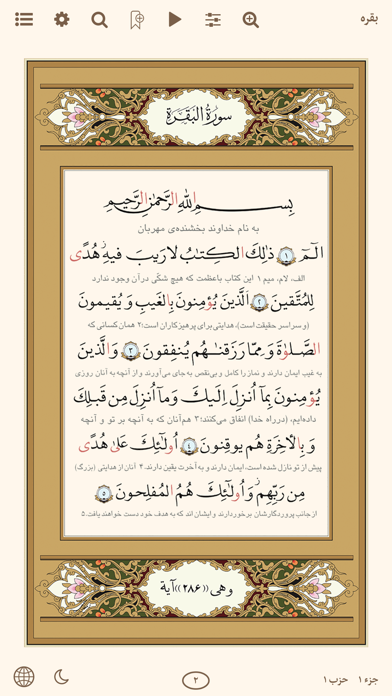 بقره
سورة البقرة
بسم الله الرحمن الرحيم
به نام خداوند بخشنده‌ی مهربان
الٓمٓ ۱ ذٰلِكَ الكِتٰبُ لارَيبَ فيهِ ۛ هُدًى
الف، لام، میم ۱ این کتاب باعظمت که هیچ شکّی در آن وجود ندارد
لِلمُتَّقينَ ۲ اَلَّذينَ يُؤمِنونَ بِالغَيبِ وَ يُقيمونَ
(و سراسر حقیقت است)، هدایتی برای پرهیزکاران است؛۲ همان کسانی که
الصَّلوٰةَ وَ مِمّا رَزَقنٰهُم يُنفِقونَ ۳ وَ الَّذينَ
به غیب ایمان دارند و نماز را کامل و بی‌نقص به‌جای می‌آورند و از آنچه به آنان روزی
يُؤمِنونَ بِمآ اُنزِلَ اِلَيكَ وَ مآ اُنزِلَ مِن قَبلِكَ
داده‌ایم، (در راه خدا) انفاق می‌کنند؛۳ هم‌آنان که به آنچه بر تو و آنچه
وَ بِالأٰخِرَةِ هُم يوقِنونَ ۴ اُولٰٓئِكَ عَلىٰ هُدًى
پیش از تو نازل شده است، ایمان دارند و به آخرت یقین دارند.۴ آنان از هدایتی (بزرگ)
مِن رَبِّهِم ۖ وَ اُولٰٓئِكَ هُمُ المُفلِحونَ ۵
از جانب پروردگارشان برخوردارند و ایشان‌اند که به هدف خود دست خواهند یافت.۵
وهی ((۲۸۶)) آیة
جزء ۱ حزب ۱
۲